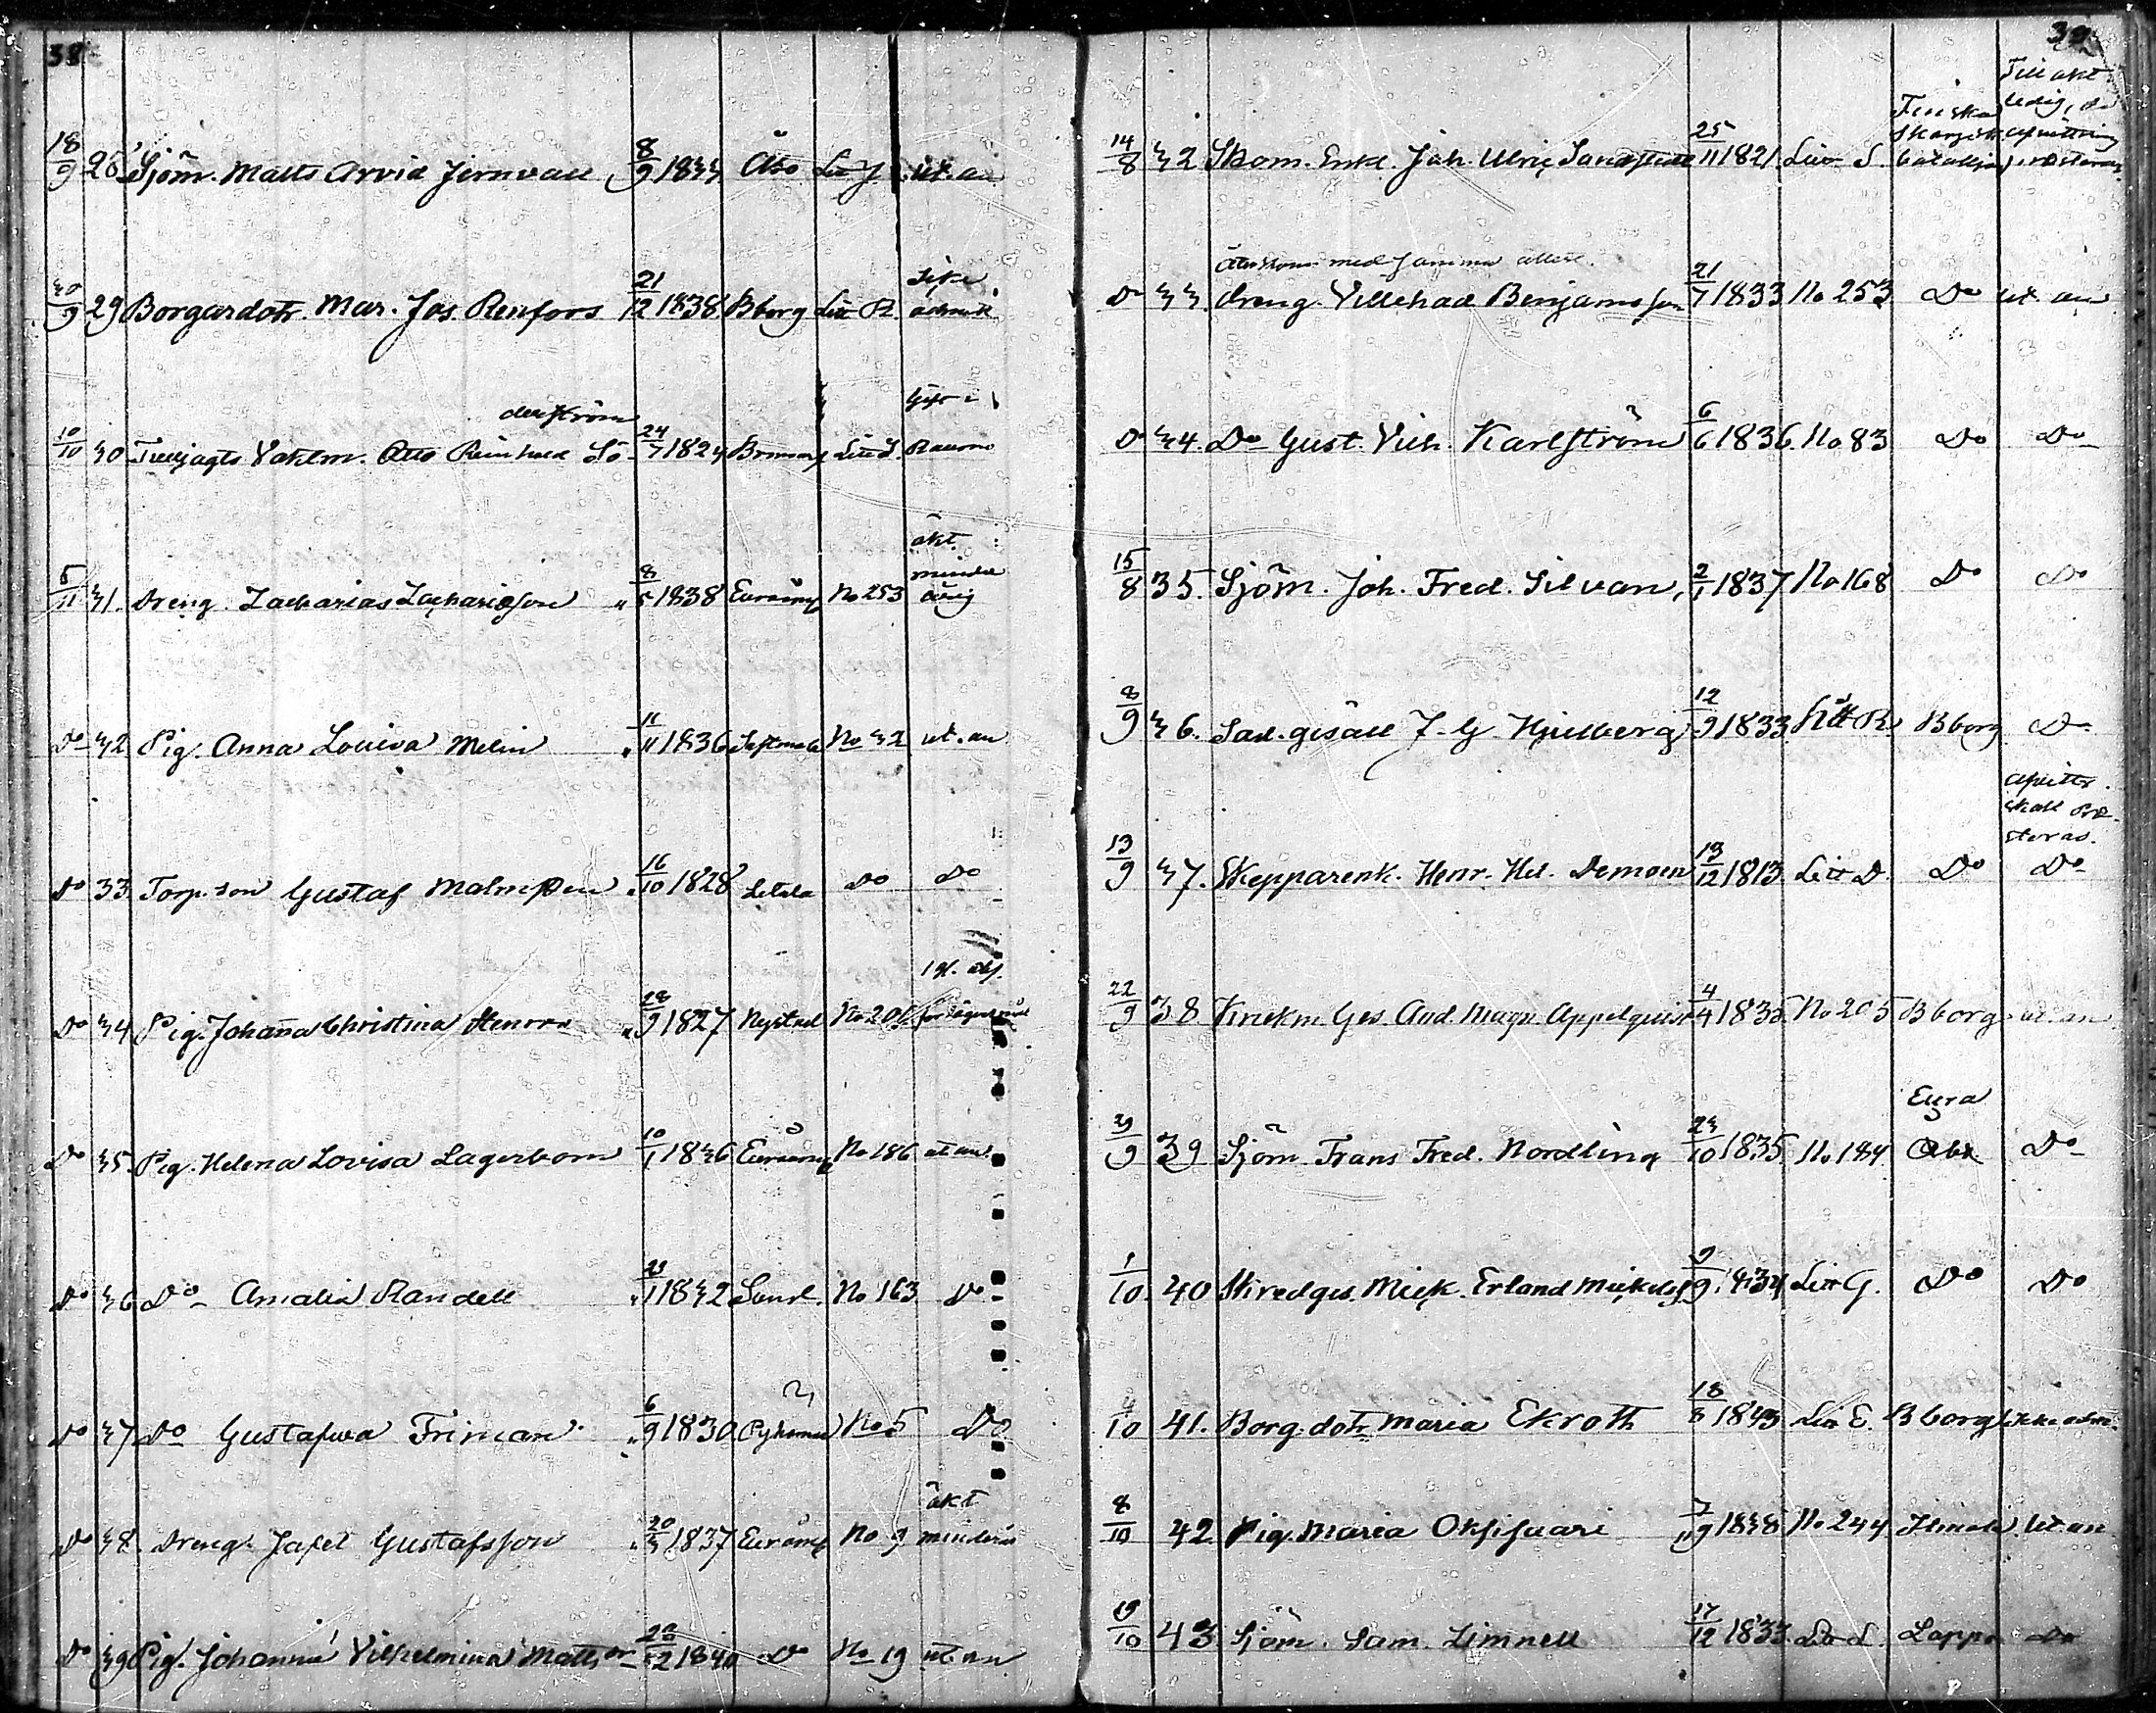 38
18/9 28 Sjöm. Matts Arvid Jernvall 8/9 1833 Åbo Litt J. ut. an
30/9 29 Borgardotr. Mar. Jos. Renfors 21/12 1838 Bborg Litt R. icke admitt
derström
10/10 30 Vaktm. Otto Reinhold Sö- 24/7 1824 Litt S. Gift i Raumo
5/11 31. Dreng. Zacharias Zachariӕson 8/5 1838 Euraåm No 253 äkt. minder årig
Do 32 Pig. Anna Lovisa Melin 11/11 1836 No 32 ut. an
Do 33 Torp. son Gustaf Malmsten 16/10 1828 Letala Do Do
Do 34 Pig. Johanna Christina Henrr 28/9 1827 Nystad No 201 1 gl. abs. för lägersmål
Do 35. Pig. Helena Lovisa Lagerbom 10/1 1836 Euraåm No 186 ut an
Do 36 Do Amalia Randell 23/1 1832 No 163 Do
Do 37 Do Gustafwa Friman 6/9 1830 Pyhäma No 5 Do
Do 38. Dreng. Jafet Gustafsson 20/3 1837 Euraåm No 9 äkt minderår
Do 39 Pig. Johanna Vilhelmina Mattsdr 28/2 1840 Do No 19 ut. an
39
14/8 32 Skom. Enkl. Joh. Ulric Sandstedt 25/11 1821. Litt S. Finska Skargårds bataljon Till äkt ledig, afvittring presteras
Återkom med samma attest.
Do 33. Dreng. Villehad Benjamsson 21/7 1833 No 253 Do ut an
Do 34. Do Gust. Vilh. Karlström 6/6 1836. No 83 Do Do
15/8 35. Sjöm. Joh. Fred. Silvan, 2/1 1837 No 168 Do Do
8/9 36. Sad. gesäll J. G. Hjelberg 12/9 1833 Litt R. Bborg Do
13/9 37. Skepparenk. Henr. Hel. Demoen 13/12 1813 Litt D. Do afvittr. skall præsteras. Do
22/9 38 Ges. And. Magn. Appelquist 4/4 1835. No 205 Bborg ut. an
29/9 39 Sjöm Frans Fred. Nordling 23/10 1835. No 184 Eura Do
1/10. 40 Skredges. Mick. Erland Mickels 9/9 1834 Litt G. Do Do
4/10 41. Borg. dotr Maria Ekroth 18/8 1843 Litt E. Bborg icke adm.
8/10 42 Pig. Maria Oksjuari 7/9 1838 No 244 ut an
19/10 43 Sjöm. Sam. Limnell 17/12 1833. Litt L. Lappo Do